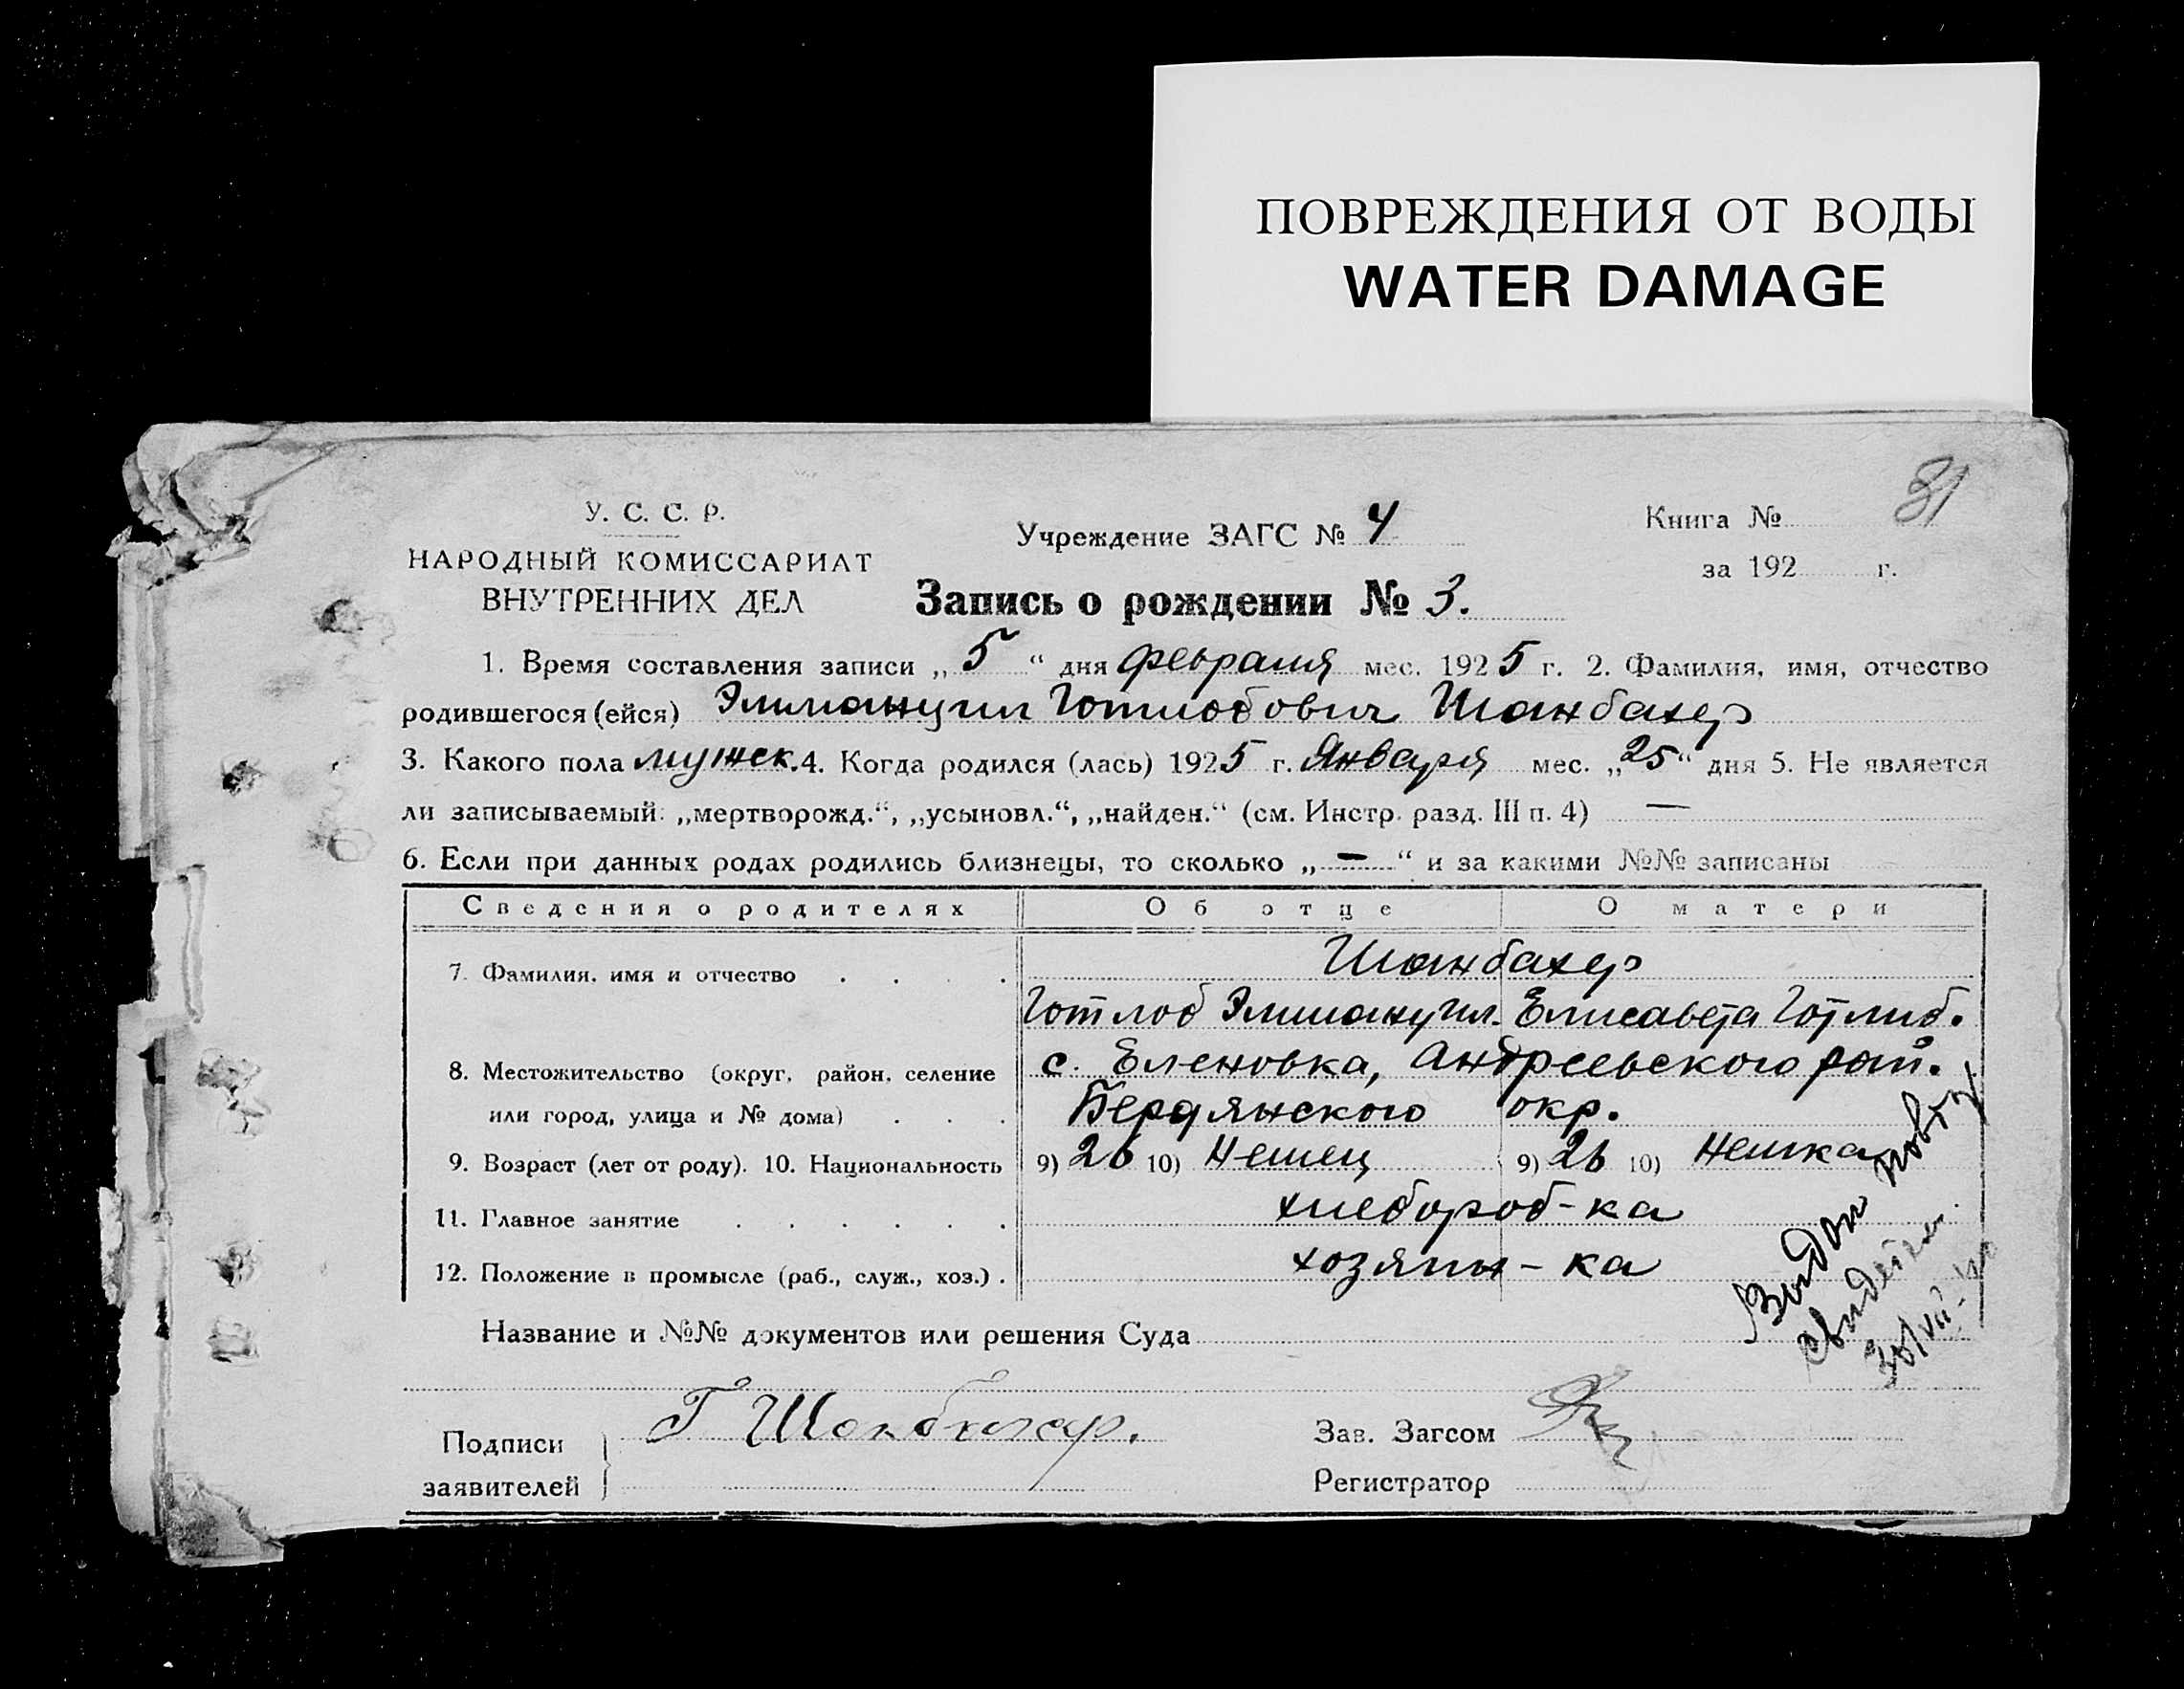 ПОВРЕЖДЕНИЯ ОТ ВОДЫ
WATER DAMAGE
81
У. С. С. Р.
НАРОДНЫЙ КОМИССАРИАТ
ВНУТРЕННИХ ДЕЛ
Учреждение ЗАГС № 4
Книга №
за 192 г.
Запись о рождении № 3.
1. Время составления записи „ 5 “ дня февраля мес. 1925 г. 2. Фамилия, имя, отчество
родившегося (ейся) Эммануил Готлобович Шанбахер
3. Какого пола мужск. 4. Когда родился (лась) 1925 г. Января мес. „25“ дня 5. Не является
ли записываемый: „мертворожд.“, „усыновл.“, „найден.“ (см. Инстр. разд. III п. 4) —
6. Если при данных родах родились близнецы, то сколько „ — “ и за какими №№ записаны
Сведения о родителях Об отце О матери
7. Фамилия, имя и отчество . . . . Шанбахер
Готлоб Эммануил. Елисавета Готлиб.
8. Местожительство (округ, район, селение с. Еленовка, Андреевского рай.
или город, улица и № дома) . . . Бердянского окр.
9. Возраст (лет от роду). 10. Национальность 9) 26 10) Немец 9) 26 10) Немка
11. Главное занятие . . . . . . хлебороб-ка
12. Положение в промысле (раб., служ., хоз.) . хозяин-ка
Название и №№ документов или решения Суда
Выдан повтор
свидетел.
30/VII-
Подписи
заявителей
Г Шанбахер.
Зав. Загсом
Регистратор